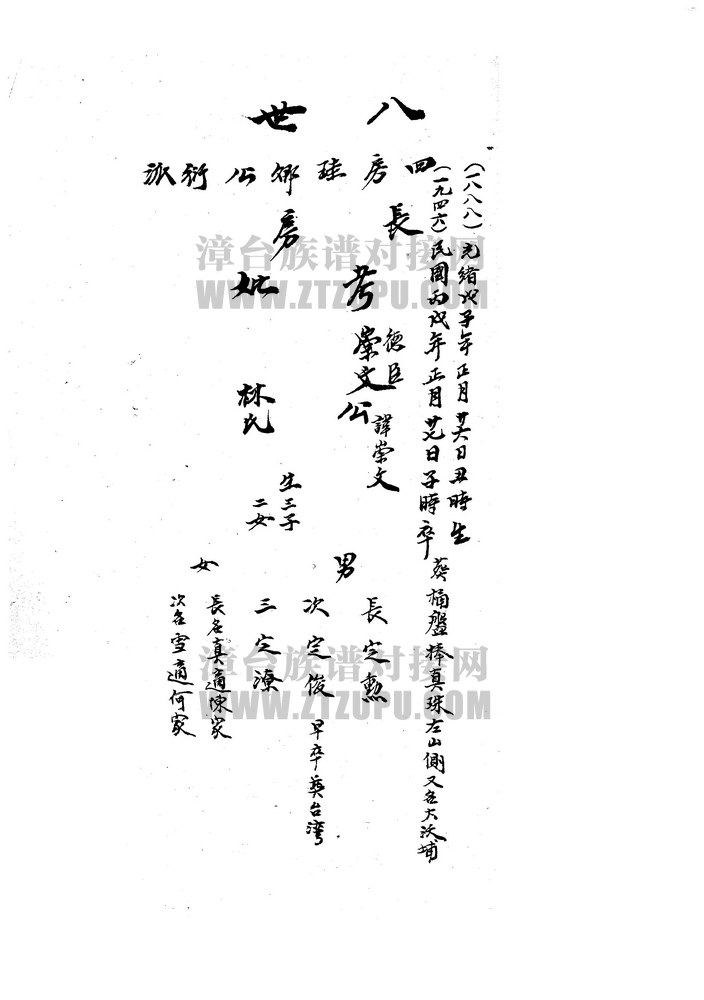 八世
四房珪卿公衍派
長房
(一八八八)光緒戊子年正月廿六日丑時生
(一九四六)民國丙戌年正月廿七日子時卒
葵桶盤棒真珠左山側又名大沃埔
考
德臣
崇文公
諱崇文
妣
林氏
生三子
二女
男
長定勲
次定俊 早卒葵台灣
三定潦
女
長名真適陳家
次名雪適何家
漳台族谱对接网
WWW.ZTZUPU.COM
漳台族谱对接网
WWW.ZTZUPU.COM